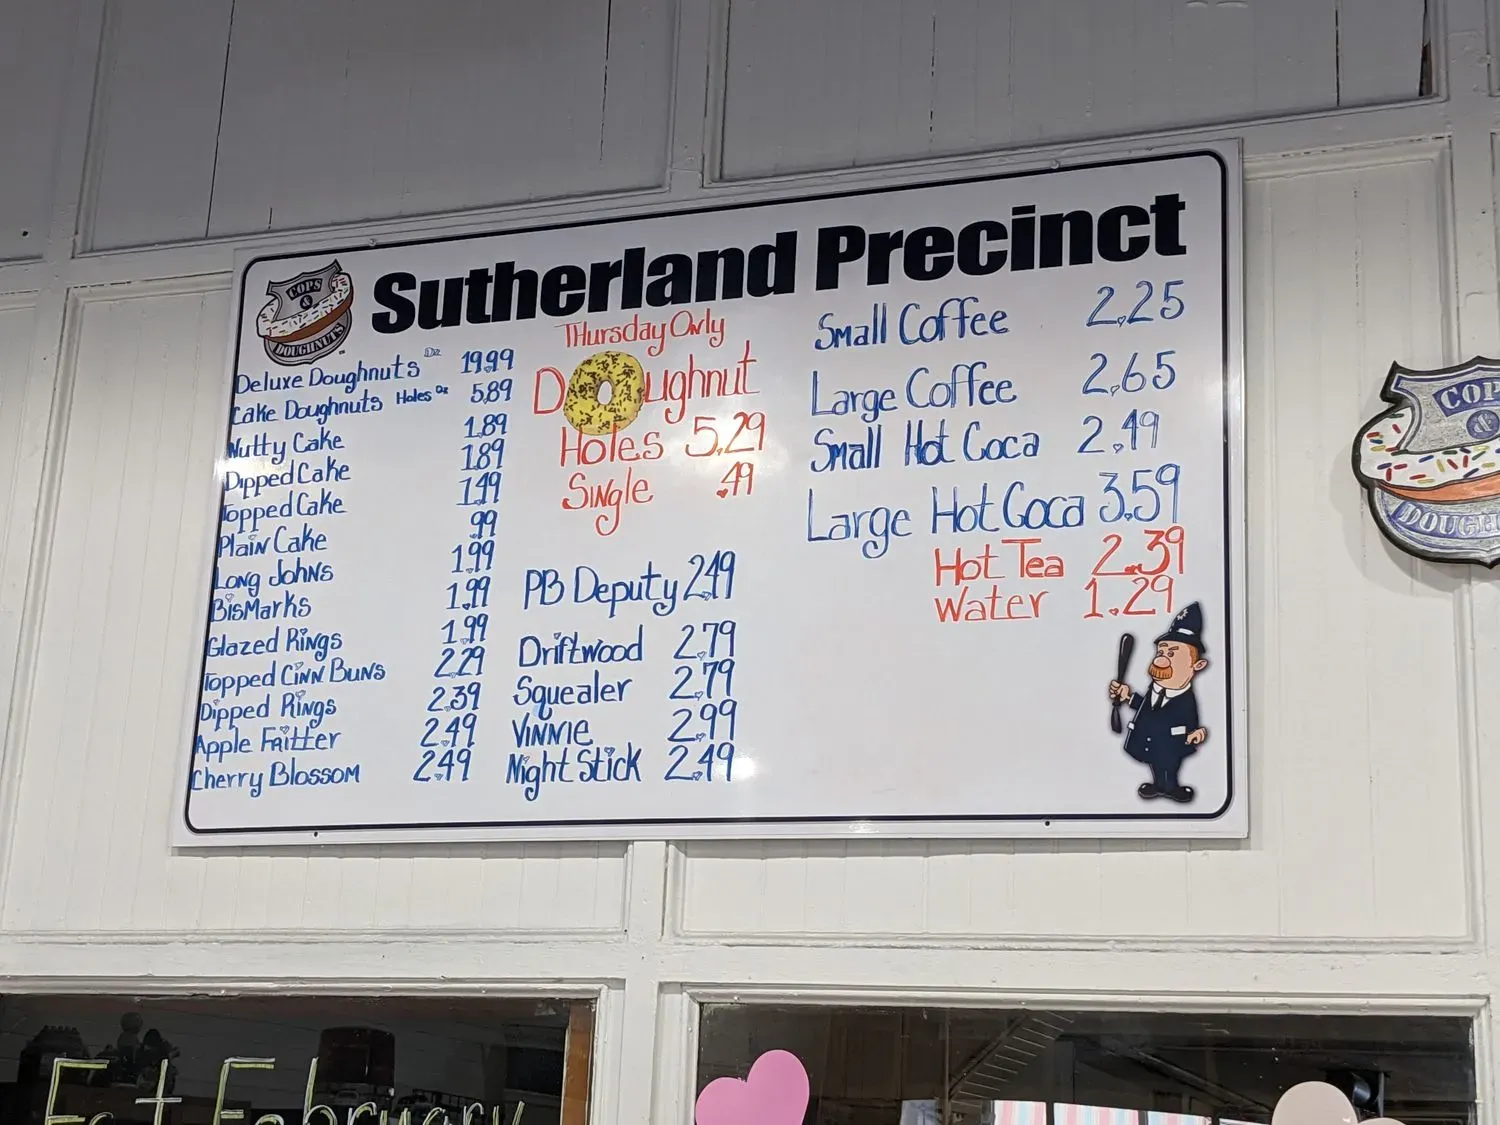 COPS
&
DOUGHNUTS
Sutherland Precinct
Deluxe Doughnuts Dz 19.99
Cake Doughnuts Holes Dz 5.89
Nutty Cake 1.89
Dipped Cake 1.89
Topped Cake 1.49
Plain Cake .99
Long Johns 1.99
BisMarks 1.99
Glazed Rings 1.99
Topped Cinn Buns 2.29
Dipped Rings 2.39
Apple Fritter 2.49
Cherry Blossom 2.49
Thursday Only
Doughnut
Holes 5.29
Single .49
PB Deputy 2.49
Driftwood 2.79
Squealer 2.79
Vinnie 2.99
Night Stick 2.49
Small Coffee 2.25
Large Coffee 2.65
Small Hot Coca 2.49
Large Hot Coca 3.59
Hot Tea 2.39
Water 1.29
COPS
&
DOUGH
February